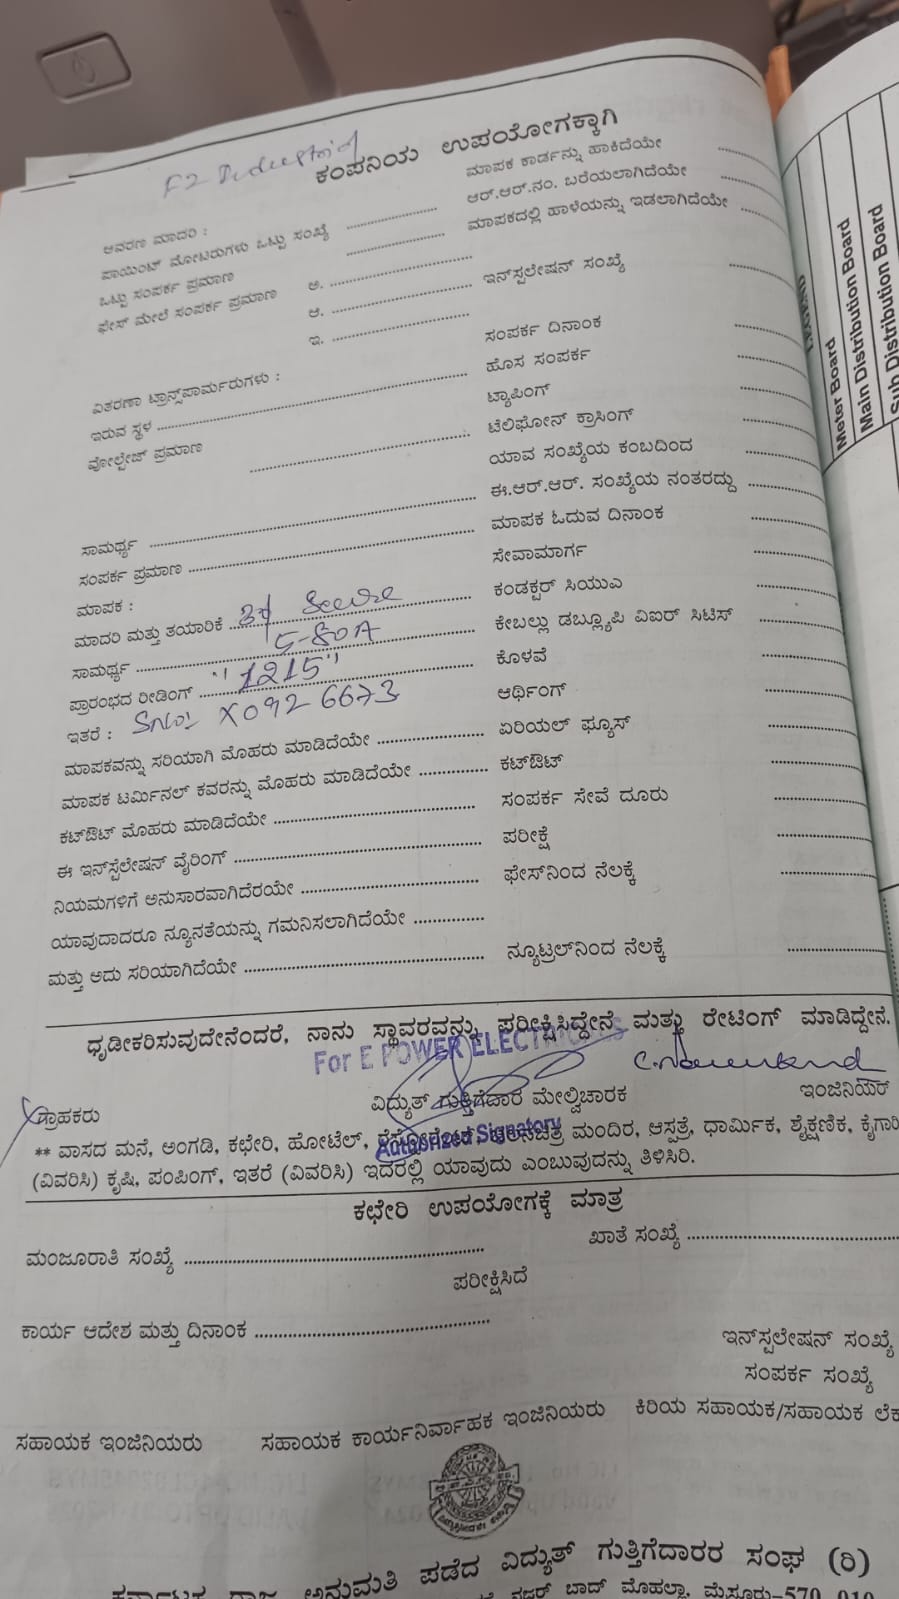 F2 Industrial
ಕಂಪನಿಯ ಉಪಯೋಗಕ್ಕಾಗಿ
ಆವರಣ ಮಾದರಿ : ........ ಮಾಪಕ ಕಾರ್ಡನ್ನು ಹಾಕಿದೆಯೇ ........
ಪಾಯಿಂಟ್ ಮೋಟರುಗಳು ಒಟ್ಟು ಸಂಖ್ಯೆ ........ ಆರ್.ಆರ್.ನಂ. ಬರೆಯಲಾಗಿದೆಯೇ ........
ಒಟ್ಟು ಸಂಪರ್ಕ ಪ್ರಮಾಣ ........ ಮಾಪಕದಲ್ಲಿ ಹಾಳೆಯನ್ನು ಇಡಲಾಗಿದೆಯೇ ........
ಫೇಸ್ ಮೇಲೆ ಸಂಪರ್ಕ ಪ್ರಮಾಣ ಅ. ........
ಆ. ........ ಇನ್‌ಸ್ಪಲೇಷನ್ ಸಂಖ್ಯೆ ........
ಇ. ........
ವಿತರಣಾ ಟ್ರಾನ್ಸ್‌ಫಾರ್ಮರುಗಳು : ಸಂಪರ್ಕ ದಿನಾಂಕ ........
ಇರುವ ಸ್ಥಳ ........ ಹೊಸ ಸಂಪರ್ಕ ........
ವೋಲ್ಟೇಜ್ ಪ್ರಮಾಣ ........ ಟ್ಯಾಪಿಂಗ್ ........
ಟೆಲಿಫೋನ್ ಕ್ರಾಸಿಂಗ್ ........
ಯಾವ ಸಂಖ್ಯೆಯ ಕಂಬದಿಂದ ........
ಸಾಮರ್ಥ್ಯ ........ ಈ.ಆರ್.ಆರ್. ಸಂಖ್ಯೆಯ ನಂತರದ್ದು ........
ಸಂಪರ್ಕ ಪ್ರಮಾಣ ........ ಮಾಪಕ ಓದುವ ದಿನಾಂಕ ........
ಮಾಪಕ : ಸೇವಾಮಾರ್ಗ ........
ಮಾದರಿ ಮತ್ತು ತಯಾರಿಕೆ 3φ Secure ಕಂಡಕ್ಟರ್ ಸಿಯುಎ ........
ಸಾಮರ್ಥ್ಯ 5-80A ಕೇಬಲ್ಲು ಡಬ್ಲ್ಯೂಪಿ ವಿಐರ್ ಸಿಟಿಸ್ ........
ಪ್ರಾರಂಭದ ರೀಡಿಂಗ್ "1215" ಕೊಳವೆ ........
ಇತರೆ : Sno: X0926673 ಆರ್ಥಿಂಗ್ ........
ಮಾಪಕವನ್ನು ಸರಿಯಾಗಿ ಮೊಹರು ಮಾಡಿದೆಯೇ ........ ಏರಿಯಲ್ ಫ್ಯೂಸ್ ........
ಮಾಪಕ ಟರ್ಮಿನಲ್ ಕವರನ್ನು ಮೊಹರು ಮಾಡಿದೆಯೇ ........ ಕಟ್‌ಔಟ್ ........
ಕಟ್‌ಔಟ್ ಮೊಹರು ಮಾಡಿದೆಯೇ ........ ಸಂಪರ್ಕ ಸೇವೆ ದೂರು ........
ಈ ಇನ್‌ಸ್ಪೆಲೇಷನ್ ವೈರಿಂಗ್ ........ ಪರೀಕ್ಷೆ ........
ನಿಯಮಗಳಿಗೆ ಅನುಸಾರವಾಗಿದೆರಯೇ ........ ಫೇಸ್‌ನಿಂದ ನೆಲಕ್ಕೆ ........
ಯಾವುದಾದರೂ ನ್ಯೂನತೆಯನ್ನು ಗಮನಿಸಲಾಗಿದೆಯೇ ........
ಮತ್ತು ಅದು ಸರಿಯಾಗಿದೆಯೇ ........ ನ್ಯೂಟ್ರಲ್‌ನಿಂದ ನೆಲಕ್ಕೆ ........
ಧೃಡೀಕರಿಸುವುದೇನೆಂದರೆ, ನಾನು ಸ್ಥಾವರವನ್ನು ಪರೀಕ್ಷಿಸಿದ್ದೇನೆ ಮತ್ತು ರೇಟಿಂಗ್ ಮಾಡಿದ್ದೇನೆ.
For E POWER ELECTRICALS
ಗ್ರಾಹಕರು ವಿದ್ಯುತ್ ಗುತ್ತಿಗೆದಾರ ಮೇಲ್ವಿಚಾರಕ ಇಂಜಿನಿಯರ್
Authorized Signatory
** ವಾಸದ ಮನೆ, ಅಂಗಡಿ, ಕಛೇರಿ, ಹೋಟೆಲ್, ಮಂದಿರ, ಆಸ್ಪತ್ರೆ, ಧಾರ್ಮಿಕ, ಶೈಕ್ಷಣಿಕ, ಕೈಗಾರಿ
(ವಿವರಿಸಿ) ಕೃಷಿ, ಪಂಪಿಂಗ್, ಇತರೆ (ವಿವರಿಸಿ) ಇದರಲ್ಲಿ ಯಾವುದು ಎಂಬುವುದನ್ನು ತಿಳಿಸಿರಿ.
ಕಛೇರಿ ಉಪಯೋಗಕ್ಕೆ ಮಾತ್ರ
ಮಂಜೂರಾತಿ ಸಂಖ್ಯೆ ........ ಖಾತೆ ಸಂಖ್ಯೆ ........
ಪರೀಕ್ಷಿಸಿದೆ
ಕಾರ್ಯ ಆದೇಶ ಮತ್ತು ದಿನಾಂಕ ........
ಇನ್‌ಸ್ಪಲೇಷನ್ ಸಂಖ್ಯೆ
ಸಂಪರ್ಕ ಸಂಖ್ಯೆ
ಸಹಾಯಕ ಇಂಜಿನಿಯರು ಸಹಾಯಕ ಕಾರ್ಯನಿರ್ವಾಹಕ ಇಂಜಿನಿಯರು ಕಿರಿಯ ಸಹಾಯಕ/ಸಹಾಯಕ ಲೆಕ
ಅನುಮತಿ ಪಡೆದ ವಿದ್ಯುತ್ ಗುತ್ತಿಗೆದಾರರ ಸಂಘ (ರಿ)
ನಜರ್ ಬಾದ್ ಮೊಹಲ್ಲಾ, ಮೈಸೂರು-570 010
Meter Board
Main Distribution Board
Sub Distribution Board